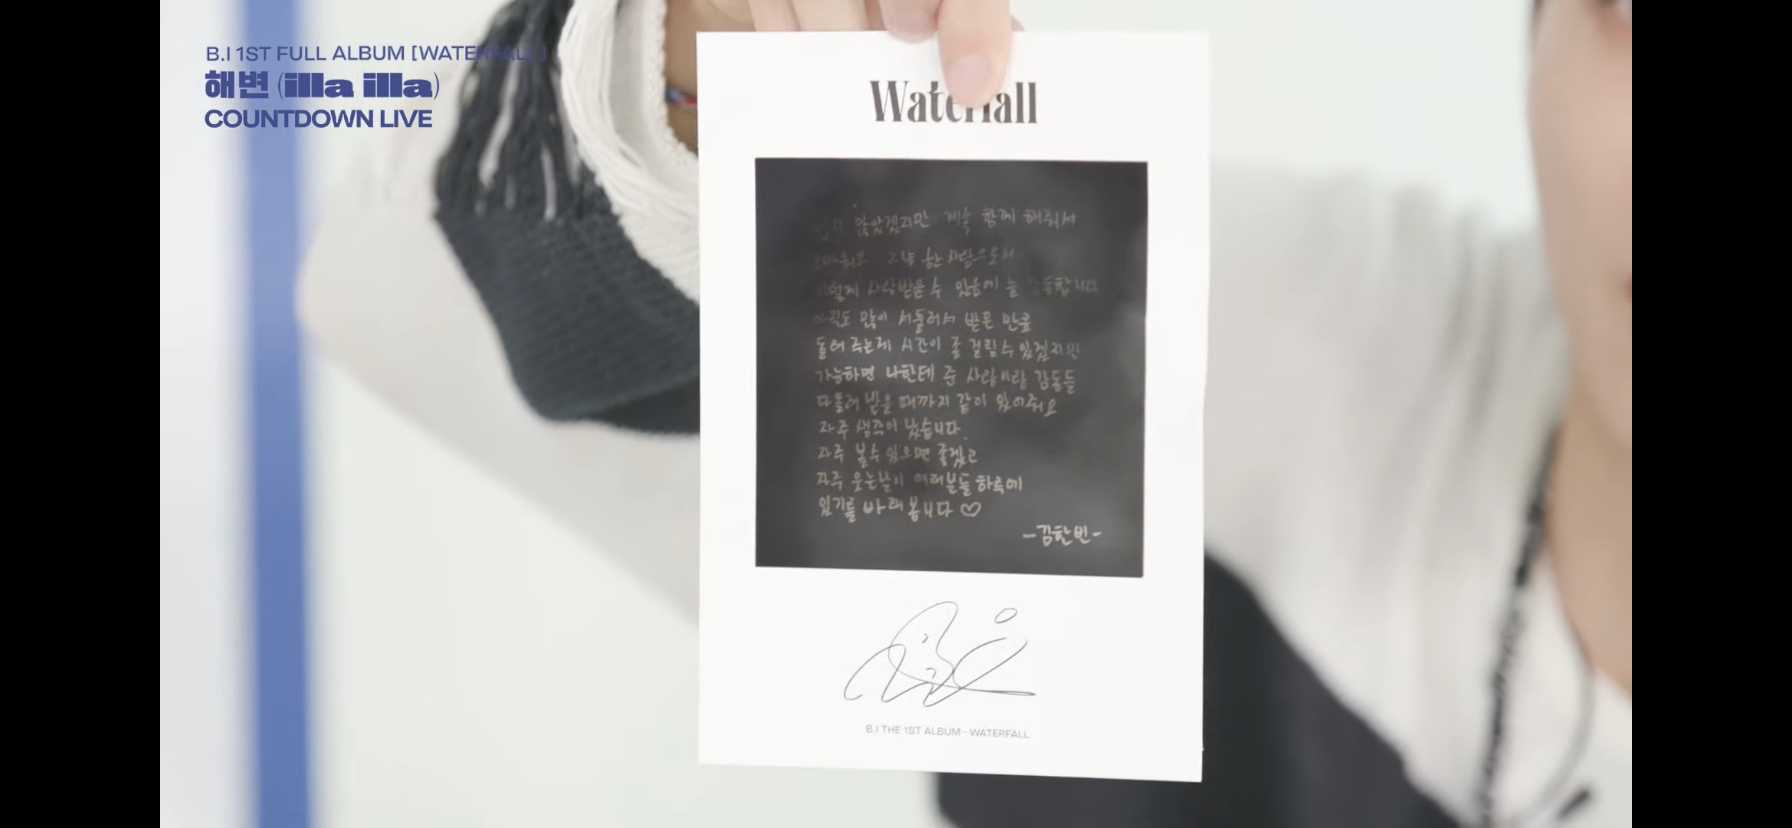 B.I 1ST FULL ALBUM [WATERFALL]
해변 (illa illa)
COUNTDOWN LIVE
Waterfall
않았겠지만 계속 함께 해줘서
그냥 한 사람으로서
사랑받을 수 있음에 늘
많이 서툴러서 받은 만큼
돌려 주는데 시간이 좀 걸릴 수 있겠지만
가능하면 나한테 준 사랑이랑 감동들
다 돌려 받을 때까지 같이 있어줘요
자주 생각이 났습니다.
자주 볼 수 있으면 좋겠고
자주 웃는 날이 여러분들 하루에
있기를 바래 봅니다 ♡
-김한빈-
B.I THE 1ST ALBUM - WATERFALL